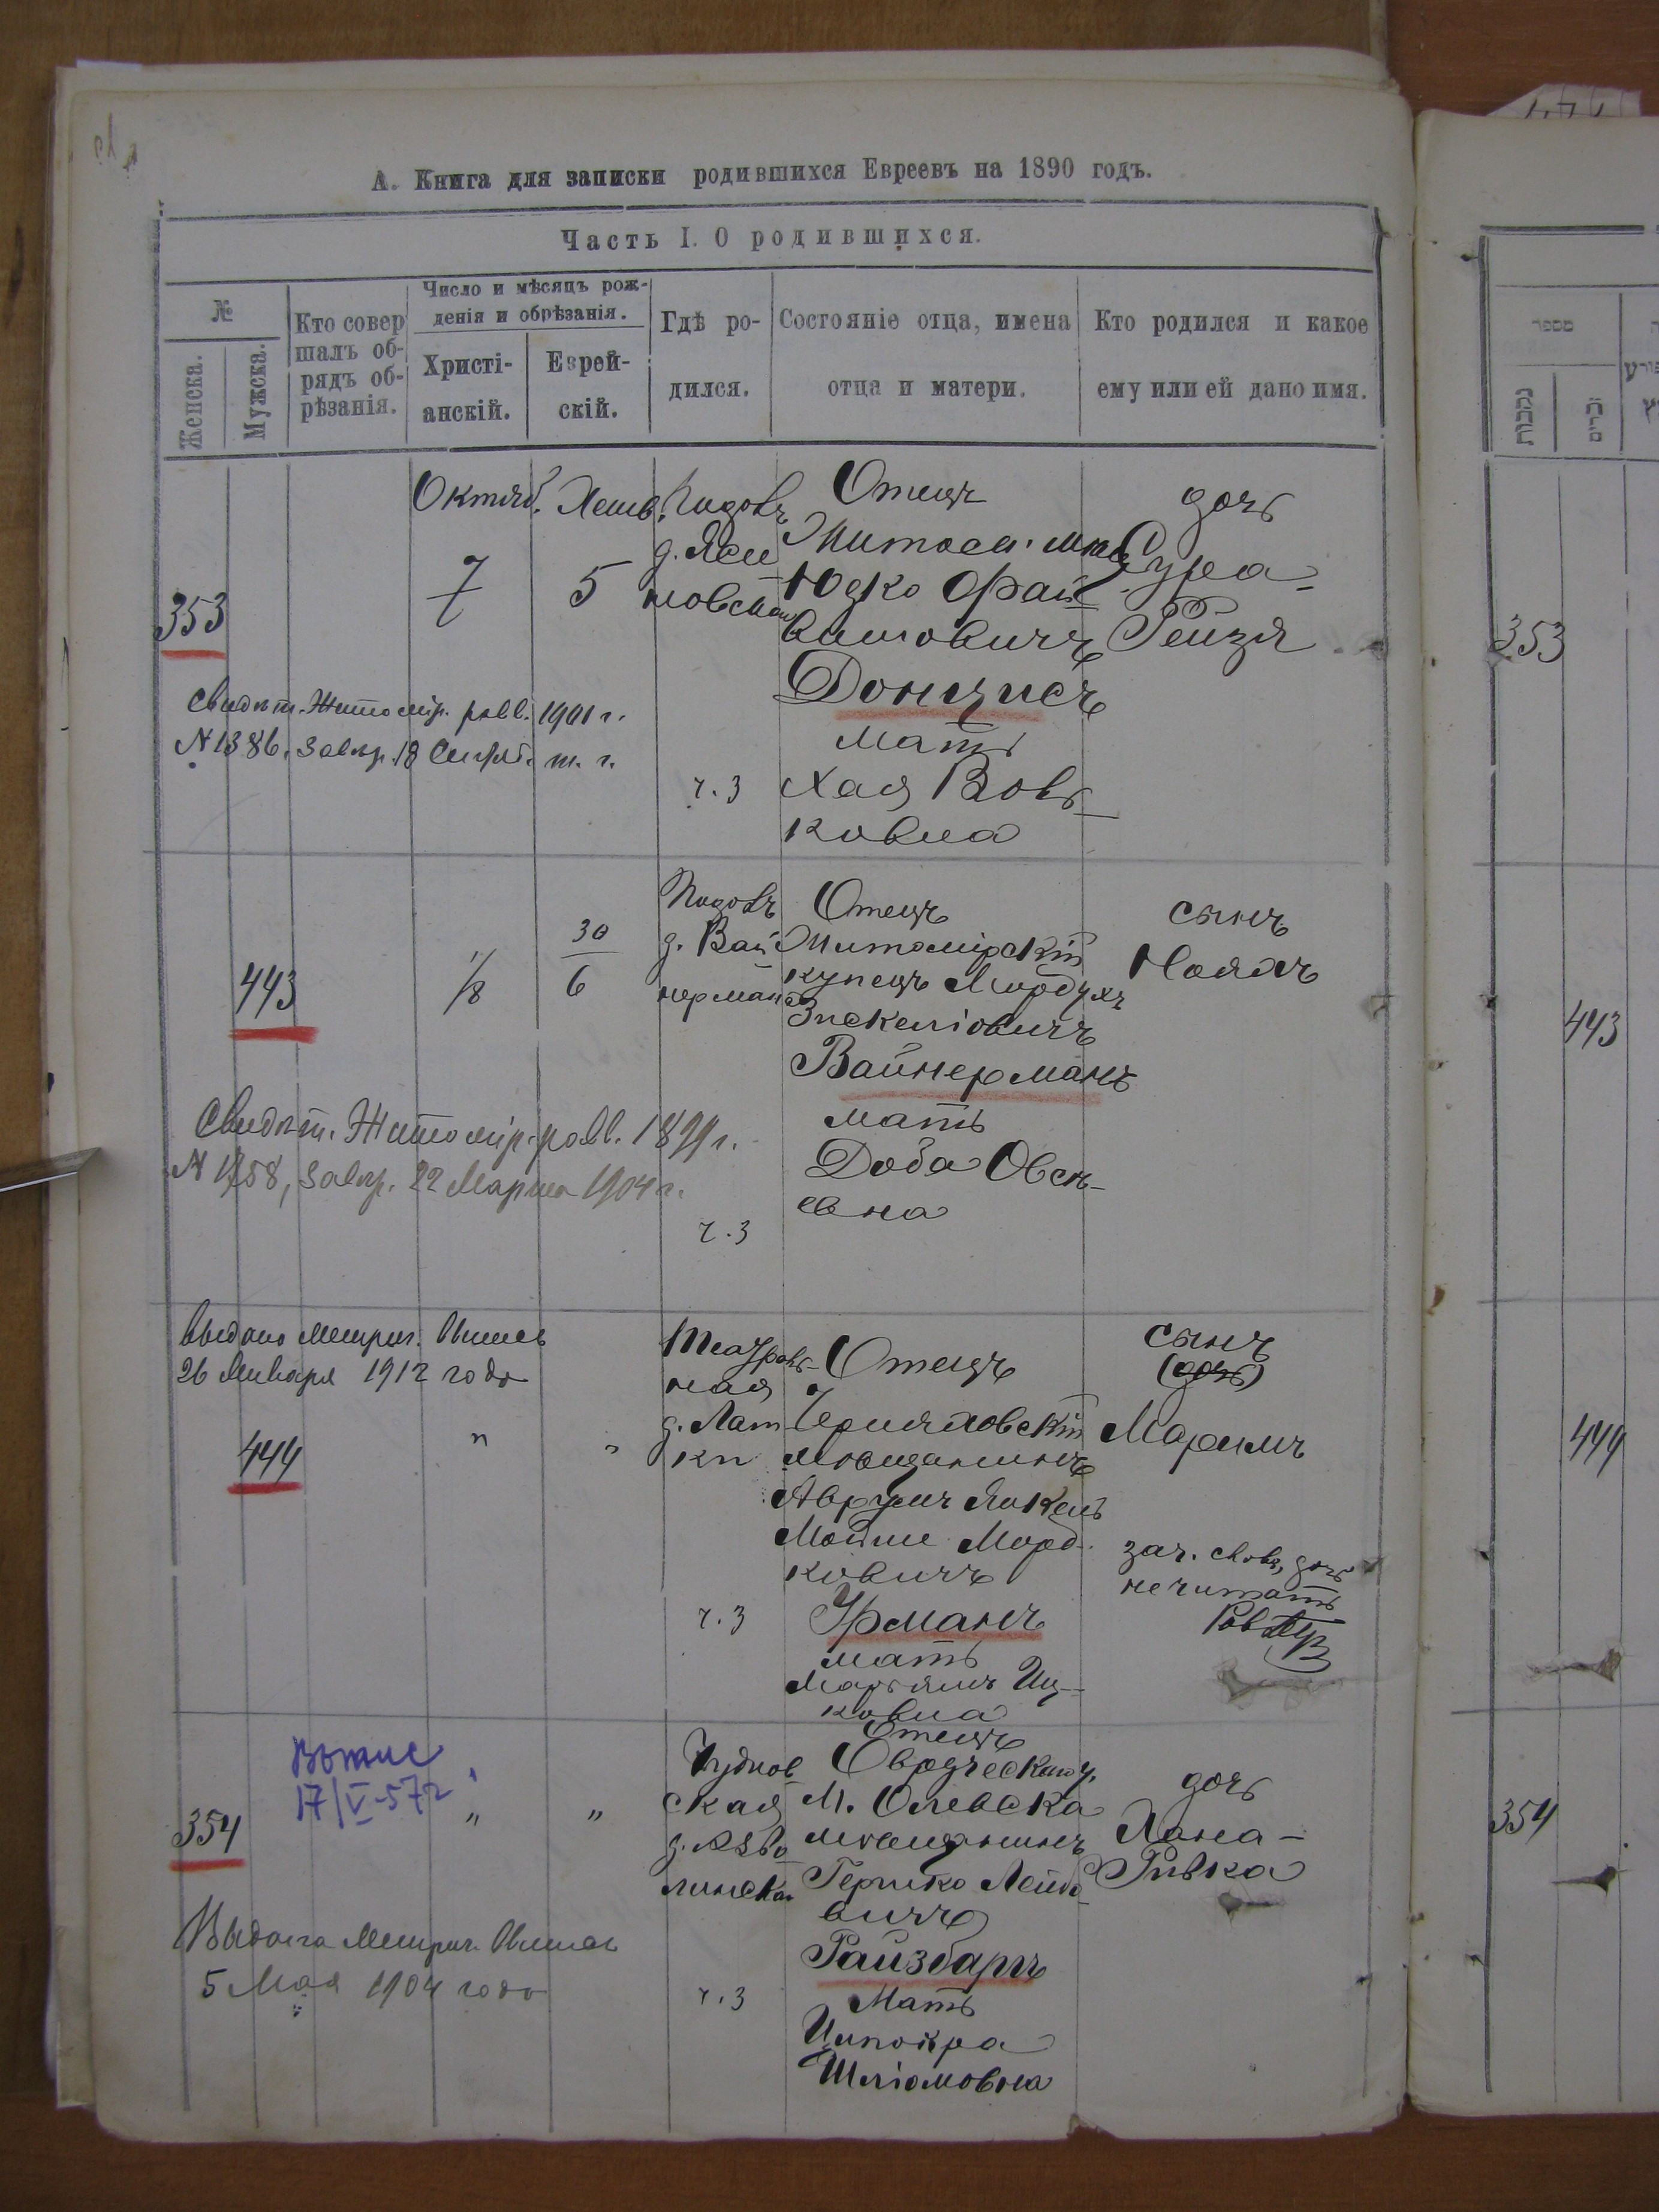 А. Книга для записки родившихся Евреевъ на 1890 годъ.
Часть I. О родившихся.
№
Женска.
Мужска.
Кто совер
шалъ об-
рядъ об-
рѣзанія.
Число и мѣсяцъ рож-
денія и обрѣзанія.
Христі-
анскій.
Еврей-
скій.
Гдѣ ро-
дился.
Состояніе отца, имена
отца и матери.
Кто родился и какое
ему или ей дано имя.
353
Октяб.
7
Хешв.
5
д. Яси
новской
Отецъ
Юдко Фай
вишовичъ
Донцисъ
мать
Хая Вовь
ковна
дочь
Сура-
Рейзя
Свидѣт. Житомір. равв. 1901 г.
N 1386, завѣр. 18 Сентяб. т. г.
ч. 3
443
1/8
30
6
д. Вай
нерман
Отецъ
Житомірскій
купецъ Мордухъ
Вайнерманъ
мать
Доба Овсѣ-
евна
сынъ
Свидѣт. Житомір. равв. 1899 г.
завѣр. 22 Марта 1904 г.
ч. 3
Выдана Метрич. Выпись
26 Января 1912 года
444
"
"
Театраль-
ная
Отецъ
Черняховскій
Мѣщанинъ
Аврумъ Янкель
Мойше Морд-
ковичъ
Урманъ
мать
Марьямъ Иц-
ковна
сынъ
(дочь)
зач. слова, дочь
не читать
ч. 3
354
17/V-57г
"
"
Чуднов
ская
Отецъ
Овручскаго у.
М. Олевска
мѣщанинъ
Гершко Лейбо
вичъ
Райзбаргъ
Мать
Ципойра
Шліомовна
дочь
Хана-
Ривка
Выдана Метрич. Выпись
5 Мая 1904 года
ч. 3
מספר
נקבות
זכרים
353
443
444
354